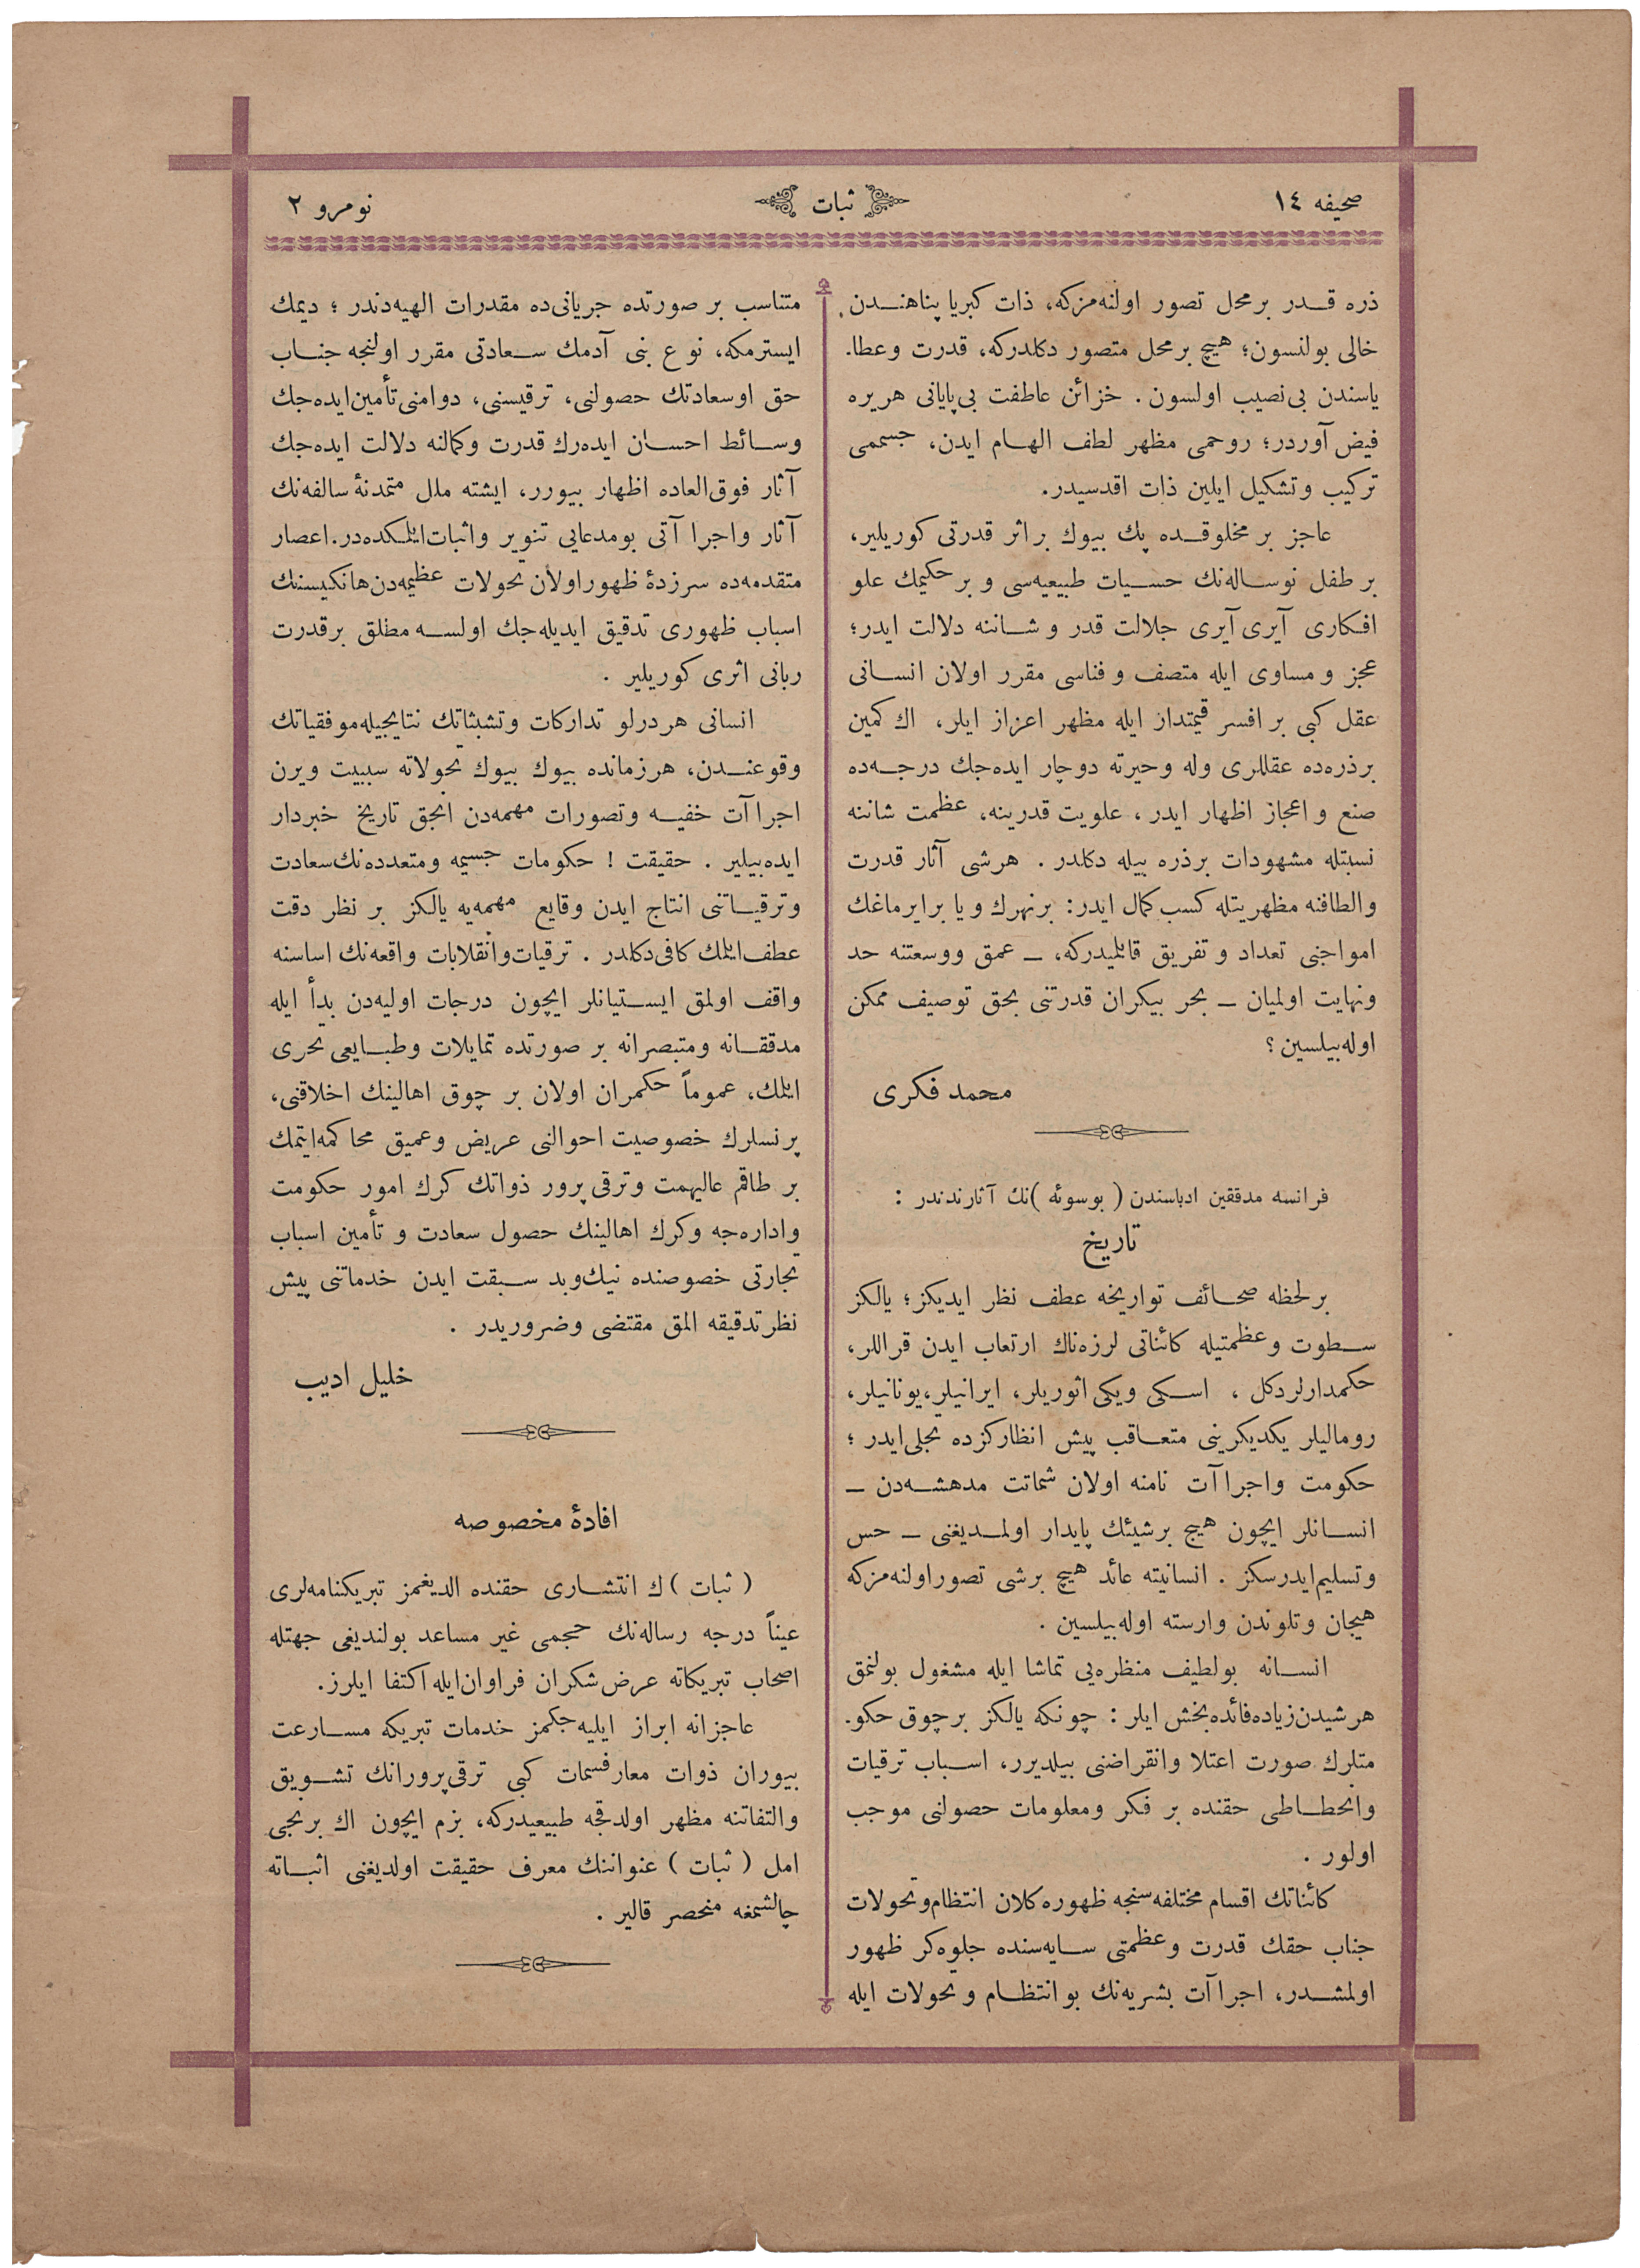 صحیفه ١٤
ثبات
نومرو ٢
ذره قدر بر محل تصور اولنه‌مزكه، ذات كبریا پناهندن
خالی بولنسون؛ هیچ بر محل متصور دكلدركه، قدرت وعطا-
یاسندن بی‌نصیب اولسون . خزائن عاطفت بی‌پایانی هر یره
فیض آوردر؛ روحمی مظهر لطف الهام ایدن، جسممی
تركیب وتشكیل ایلین ذات اقدسیدر.
عاجز بر مخلوقده پك بیوك بر اثر قدرتی كوریلیر،
بر طفل نوساله‌نك حسیات طبیعیه‌سی و بر حكیمك علو
افكاری آیری آیری جلالت قدر و شاننه دلالت ایدر؛
عجز و مساوی ایله متصف و فناسی مقرر اولان انسانی
عقل كبی بر افسر قیمتدار ایله مظهر اعزاز ایلر، اك كمین
بر ذره‌ده عقللری وله وحیرته دوچار ایده‌جك درجه‌ده
صنع و اعجاز اظهار ایدر ، علویت قدرینه، عظمت شاننه
نسبتله مشهودات بر ذره بیله دكلدر . هر شی آثار قدرت
والطافنه مظهریتله كسب كمال ایدر: بر نهرك و یا بر ایرماغك
امواجنی تعداد و تفریق قابلمیدركه، ــ عمق ووسعتنه حد
ونهایت اولمیان ــ بحر بیكران قدرتنی بحق توصیف ممكن
اوله‌بیلسین ؟
محمد فكری
فرانسه مدققین ادباسندن ( بوسوئه )نك آثارندندر :
تاریخ
بر لحظه صحائف تواریخه عطف نظر ایدیكز؛ یالكز
سطوت و عظمتیله كائناتی لرزه‌ناك ارتعاب ایدن قراللر،
حكمدارلر دكل ، اسكی ویكی اثوریلر، ایرانیلر، یونانیلر،
رومالیلر یكدیكرینی متعاقب پیش انظاركزده تجلی ایدر ؛
حكومت واجراآت نامنه اولان شماتت مدهشه‌دن ــ
انسانلر ایچون هیچ بر شیئك پایدار اولمدیغنی ــ حس
وتسلیم ایدرسكز . انسانیته عائد هیچ برشی تصور اولنه‌مزكه
هیجان وتلوندن وارسته اوله‌بیلسین .
انسانه بولطیف منظره‌یی تماشا ایله مشغول بولنمق
هر شیدن زیاده فائده‌بخش ایلر : چونكه یالكز بر چوق حكو-
متلرك صورت اعتلا وانقراضنی بیلدیرر، اسباب ترقیات
وانحطاطی حقنده بر فكر ومعلومات حصولنی موجب
اولور .
كائناتك اقسام مختلفه‌سنجه ظهوره كلان انتظام وتحولات
جناب حقك قدرت وعظمتی سایه‌سنده جلوه‌كر ظهور
اولمشدر، اجراآت بشریه‌نك بو انتظام و تحولات ایله
متناسب بر صورتده جریانی‌ده مقدرات الهیه‌دندر ؛ دیمك
ایسترمكه، نوع بنی آدمك سعادتی مقرر اولنجه جناب
حق او سعادتك حصولنی، ترقیسنی، دوامنی تأمین ایده‌جك
وسائط احسان ایده‌رك قدرت وكمالنه دلالت ایده‌جك
آثار فوق‌العاده اظهار بیورر، ایشته ملل متمدنهٔ سالفه‌نك
آثار واجرا آتی بومدعایی تنویر واثبات ایلمكده‌در. اعصار
متقدمه‌ده سرزدهٔ ظهور اولان تحولات عظیمه‌دن هانكیسنك
اسباب ظهوری تدقیق ایدیله‌جك اولسه مطلق بر قدرت
ربانی اثری كوریلیر .
انسانی هر درلو تداركات وتشبثاتك نتایجیله موفقیاتك
وقوعندن، هر زمانده بیوك بیوك تحولاته سببیت ویرن
اجراآت خفیه وتصورات مهمه‌دن انجق تاریخ خبردار
ایده‌بیلیر . حقیقت ! حكومات جسیمه ومتعدده‌نك سعادت
وترقیاتنی انتاج ایدن وقایع مهمه‌یه یالكز بر نظر دقت
عطف ایلمك كافی دكلدر . ترقیات وانقلابات واقعه‌نك اساسنه
واقف اولمق ایستیانلر ایچون درجات اولیه‌دن بدأ ایله
مدققانه ومتبصرانه بر صورتده تمایلات وطبایعی تحری
ایلمك، عموماً حكمران اولان بر چوق اهالینك اخلاقنی،
پرنسلرك خصوصیت احوالنی عریض وعمیق محاكمه ایتمك
بر طاقم عالیهمت وترقی پرور ذواتك كرك امور حكومت
واداره‌جه وكرك اهالینك حصول سعادت و تأمین اسباب
تجارتی خصوصنده نیك‌وبد سبقت ایدن خدماتنی پیش
نظر تدقیقه المق مقتضی وضروریدر .
خلیل ادیب
افادهٔ مخصوصه
( ثبات )ك انتشاری حقنده الدیغمز تبریكنامه‌لری
عیناً درجه رساله‌نك حجمی غیر مساعد بولندیغی جهتله
اصحاب تبریكاته عرض شكران فراوان ایله اكتفا ایلرز.
عاجزانه ابراز ایلیه‌جكمز خدمات تبریكه مسارعت
بیوران ذوات معارفسمات كبی ترقی‌پرورانك تشویق
والتفاتنه مظهر اولدقجه طبیعیدركه، بزم ایچون اك برنجی
امل ( ثبات ) عنواننك معرف حقیقت اولدیغنی اثباته
چالشمغه منحصر قالیر .